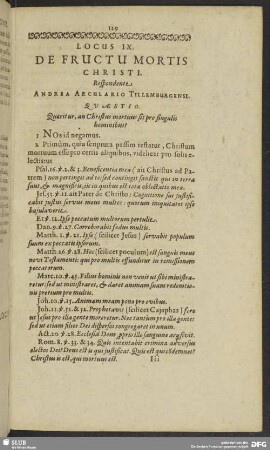 129
LOCUS IX.
DE FRUCTU MORTIS
CHRISTI.
Respondente
ANDREA AECULARIO TYLEMBURGENSI.
QVÆSTIO.
Quæritur, an Christus mortuus sit pro singulis
hominibus?
1 Nos id negamus.
2 Primùm, quia scriptura passim testatur, Christum
mortuum esse pro certis aliquibus, videlicet pro solis e-
lectis:ut
Psal. 16. ℣. 2. & 3. Beneficentia mea (ait Christus ad Pa-
trem) non pertingit ad te: sed contingit sanctis qui in terra
sunt, & magnificis, in in quibus est tota oblectatio mea.
Jes. 53. ℣. 11. ait Pater de Christo: Cognitione sui justifi-
cabit justus servus meus multos: quorum iniquitates ipse
bajulaverit.
Et ℣. 12. Ipse peccatum multorum pertulit.
Dan. 9. ℣. 27. Corroborabit fœdus multis.
Matth. 1. ℣. 21. Ipse [scilicet Jesus] servabit populum
suum ex peccatis ipsorum.
Matth. 26. ℣. 28. Hoc [scilicet poculum] est sanguis meus
novi Testamenti: qui pro multis effunditur in remissionem
peccatorum.
Marc. 10. ℣. 45. Filius hominis non venit ut sibi ministra-
retur: sed ut ministraret, & daret animam suam redemtio-
nis pretium pro multis.
Joh. 10. ℣. 15. Animam meam pono pro ovibus.
Joh. 11. ℣. 51. & 52. Prophetavit [scilicet Cajaphas] fore
ut Jesus pro illa gente moreretur. Nec tantùm pro illa gente:
sed ut etiam filios Dei dispersos congregaret in unum.
Act. 20. ℣. 28. Ecclesia Dom. pprio illo sanguine acqsivit.
Rom. 8. ℣. 33. & 34. Quis intentabit crimina adversus
electos Dei? Deus est is qui justificat. Quis est qui cõdemnet?
Christus is est, qui mortuus est.
I iij
SLUB